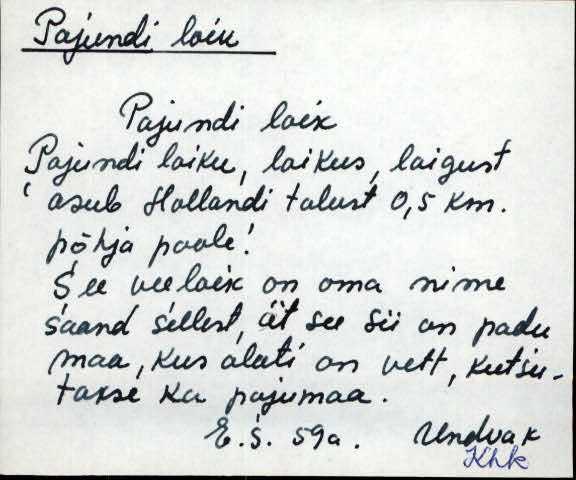 Pajundi loik
Pajundi loik
Pajundi loiku, loikus, loigust
asub Hollandi talust 0,5 km.
põhja poole!
See veeloik on oma nime
saand sellest, ät see sii on padu
maa, kus alati on vett, kutsu-
takse ka pajumaa.
E.S. 59a. Undvak
Khk